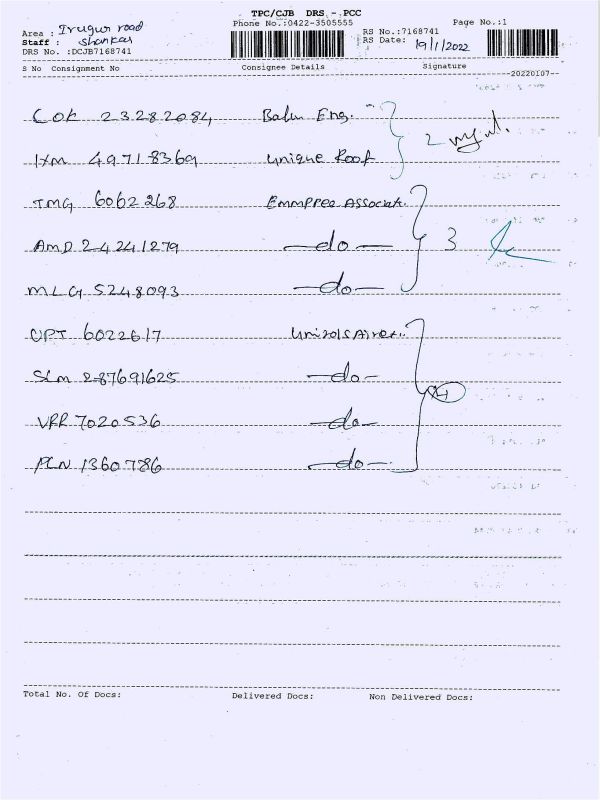 TPC/CJB DRS - PCC
Phone No.:0422-3505555 Page No.:1
Area : Irugur road
Staff : Shankar
DRS No. :DCJB7168741
RS No.:7168741
RS Date: 19/1/2022
S No Consignment No Consignee Details Signature
20220107
COK 23282084 Balu Eng. 2
IXM 49718369 Unique Roof
TMG 6062268 Emmpree Associat..
AMD 24241279 —do— 3
MLG 5248093 —do—
UPT 6022617
SLM 287691625 —do—
VRR 7020536 —do—
PLN 1360786 —do—
Total No. Of Docs: Delivered Docs: Non Delivered Docs: